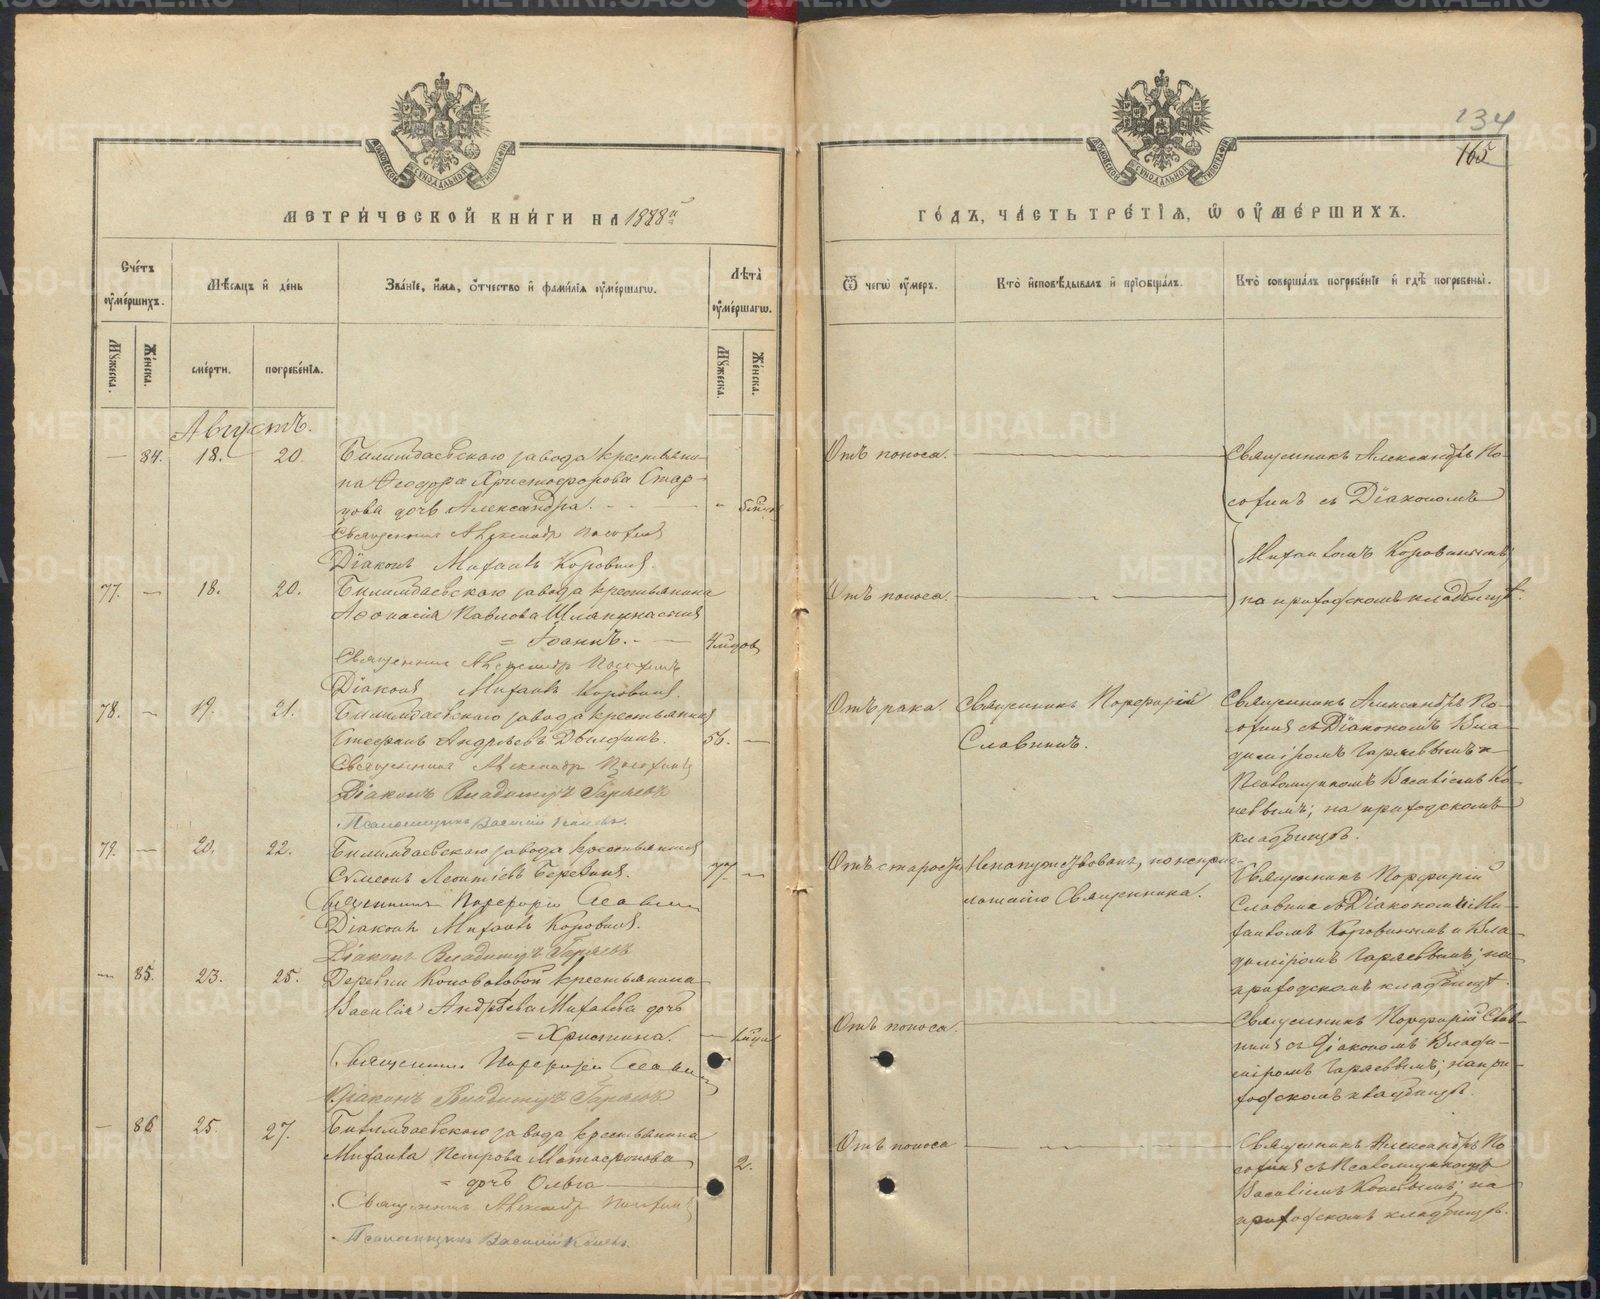 134
165
МЕТРИ́ЧЕСКОЙ КНИ́ГИ НА 1888й
ГО́ДЪ, ЧА́СТЬ ТРЕ́ТІѦ, Ѡ ОУ҆МЕ́РШИХЪ.
Сче́тъ оу҆ме́ршихъ.
Мѣ́сяцъ и҆ де́нь
Зва́ніе, и҆́мя, ѻ҆́тчество и҆ фами́лія оу҆ме́ршагѡ.
Лѣта̀ оу҆ме́ршагѡ.
Ѿ чегѡ̀ оу҆́меръ.
Кто̀ и҆сповѣ́дывалъ и҆ пріѡбща́лъ.
Кто̀ соверша́лъ погребе́ніе и҆ гдѣ̀ погребены̀.
Мꙋ́жеска.
Же́нска.
сме́рти.
погребе́нія.
Мꙋ́жеска.
Же́нска.
Августъ.
— 84. 18. 20.
Билимбаевскаго завода крестьяни-
на Ѳеодора Христофорова Стар-
цова дочь Александра.
Священникъ Александръ
Діаконъ Михаилъ Коровинъ.
Отъ поноса.
Священникъ Александръ По-
съ Діакономъ
Михаиломъ Коровинымъ;
на приходскомъ кладбищѣ.
77. — 18. 20.
Билимбаевскаго завода крестьянина
Аѳонасія Павлова сынъ
= Іоаннъ. —
4 годов
Священникъ Александръ
Діаконъ Михаилъ Коровинъ.
Отъ поноса.
78. — 19. 21.
Билимбаевскаго завода крестьянинъ
Стефанъ Андреевъ
56. —
Священникъ Александръ
Діаконъ Владиміръ Гаряевъ
Псаломщикъ Василій
Отъ рака.
Священникъ Порфирій
Славнинъ.
Священникъ Александръ По-
съ Діакономъ Вла-
диміромъ Гаряевымъ и
Псаломщикомъ Василіемъ Ко-
невымъ; на приходскомъ
кладбищѣ.
79. — 20. 22.
Билимбаевскаго завода крестьянинъ
Сѵмеонъ Леонтіевъ Березинъ.
77. —
Священникъ Порфирій Славнинъ
Діаконъ Михаилъ Коровинъ.
Діаконъ Владиміръ Гаряевъ
Отъ старости
Ненапутствованъ, по непригла-
шенію Священника.
Священникъ Порфирій
Славнинъ съ Діакономъ Ми-
хаиломъ Коровинымъ и Вла-
диміромъ Гаряевымъ; на
приходскомъ кладбищѣ.
— 85. 23. 25.
Деревни Коноваловой крестьянина
Василія Андреева Михалева дочь
= Христина.
Священникъ Порфирій Славнинъ
Діаконъ Владиміръ Гаряевъ
Отъ поноса.
Священникъ Порфирій Слав-
нинъ съ Діакономъ Влади-
міромъ Гаряевымъ; на при-
ходскомъ кладбищѣ.
— 86 25. 27.
Билимбаевскаго завода крестьянина
Михаила Петрова
= дочь Ольга
2.
Священникъ Александръ
Псаломщикъ Василій
Отъ поноса
Священникъ Александръ По-
съ Псаломщикомъ
Василіемъ Коневымъ; на
приходскомъ кладбищѣ.
METRIKI.GASO-URAL.RU